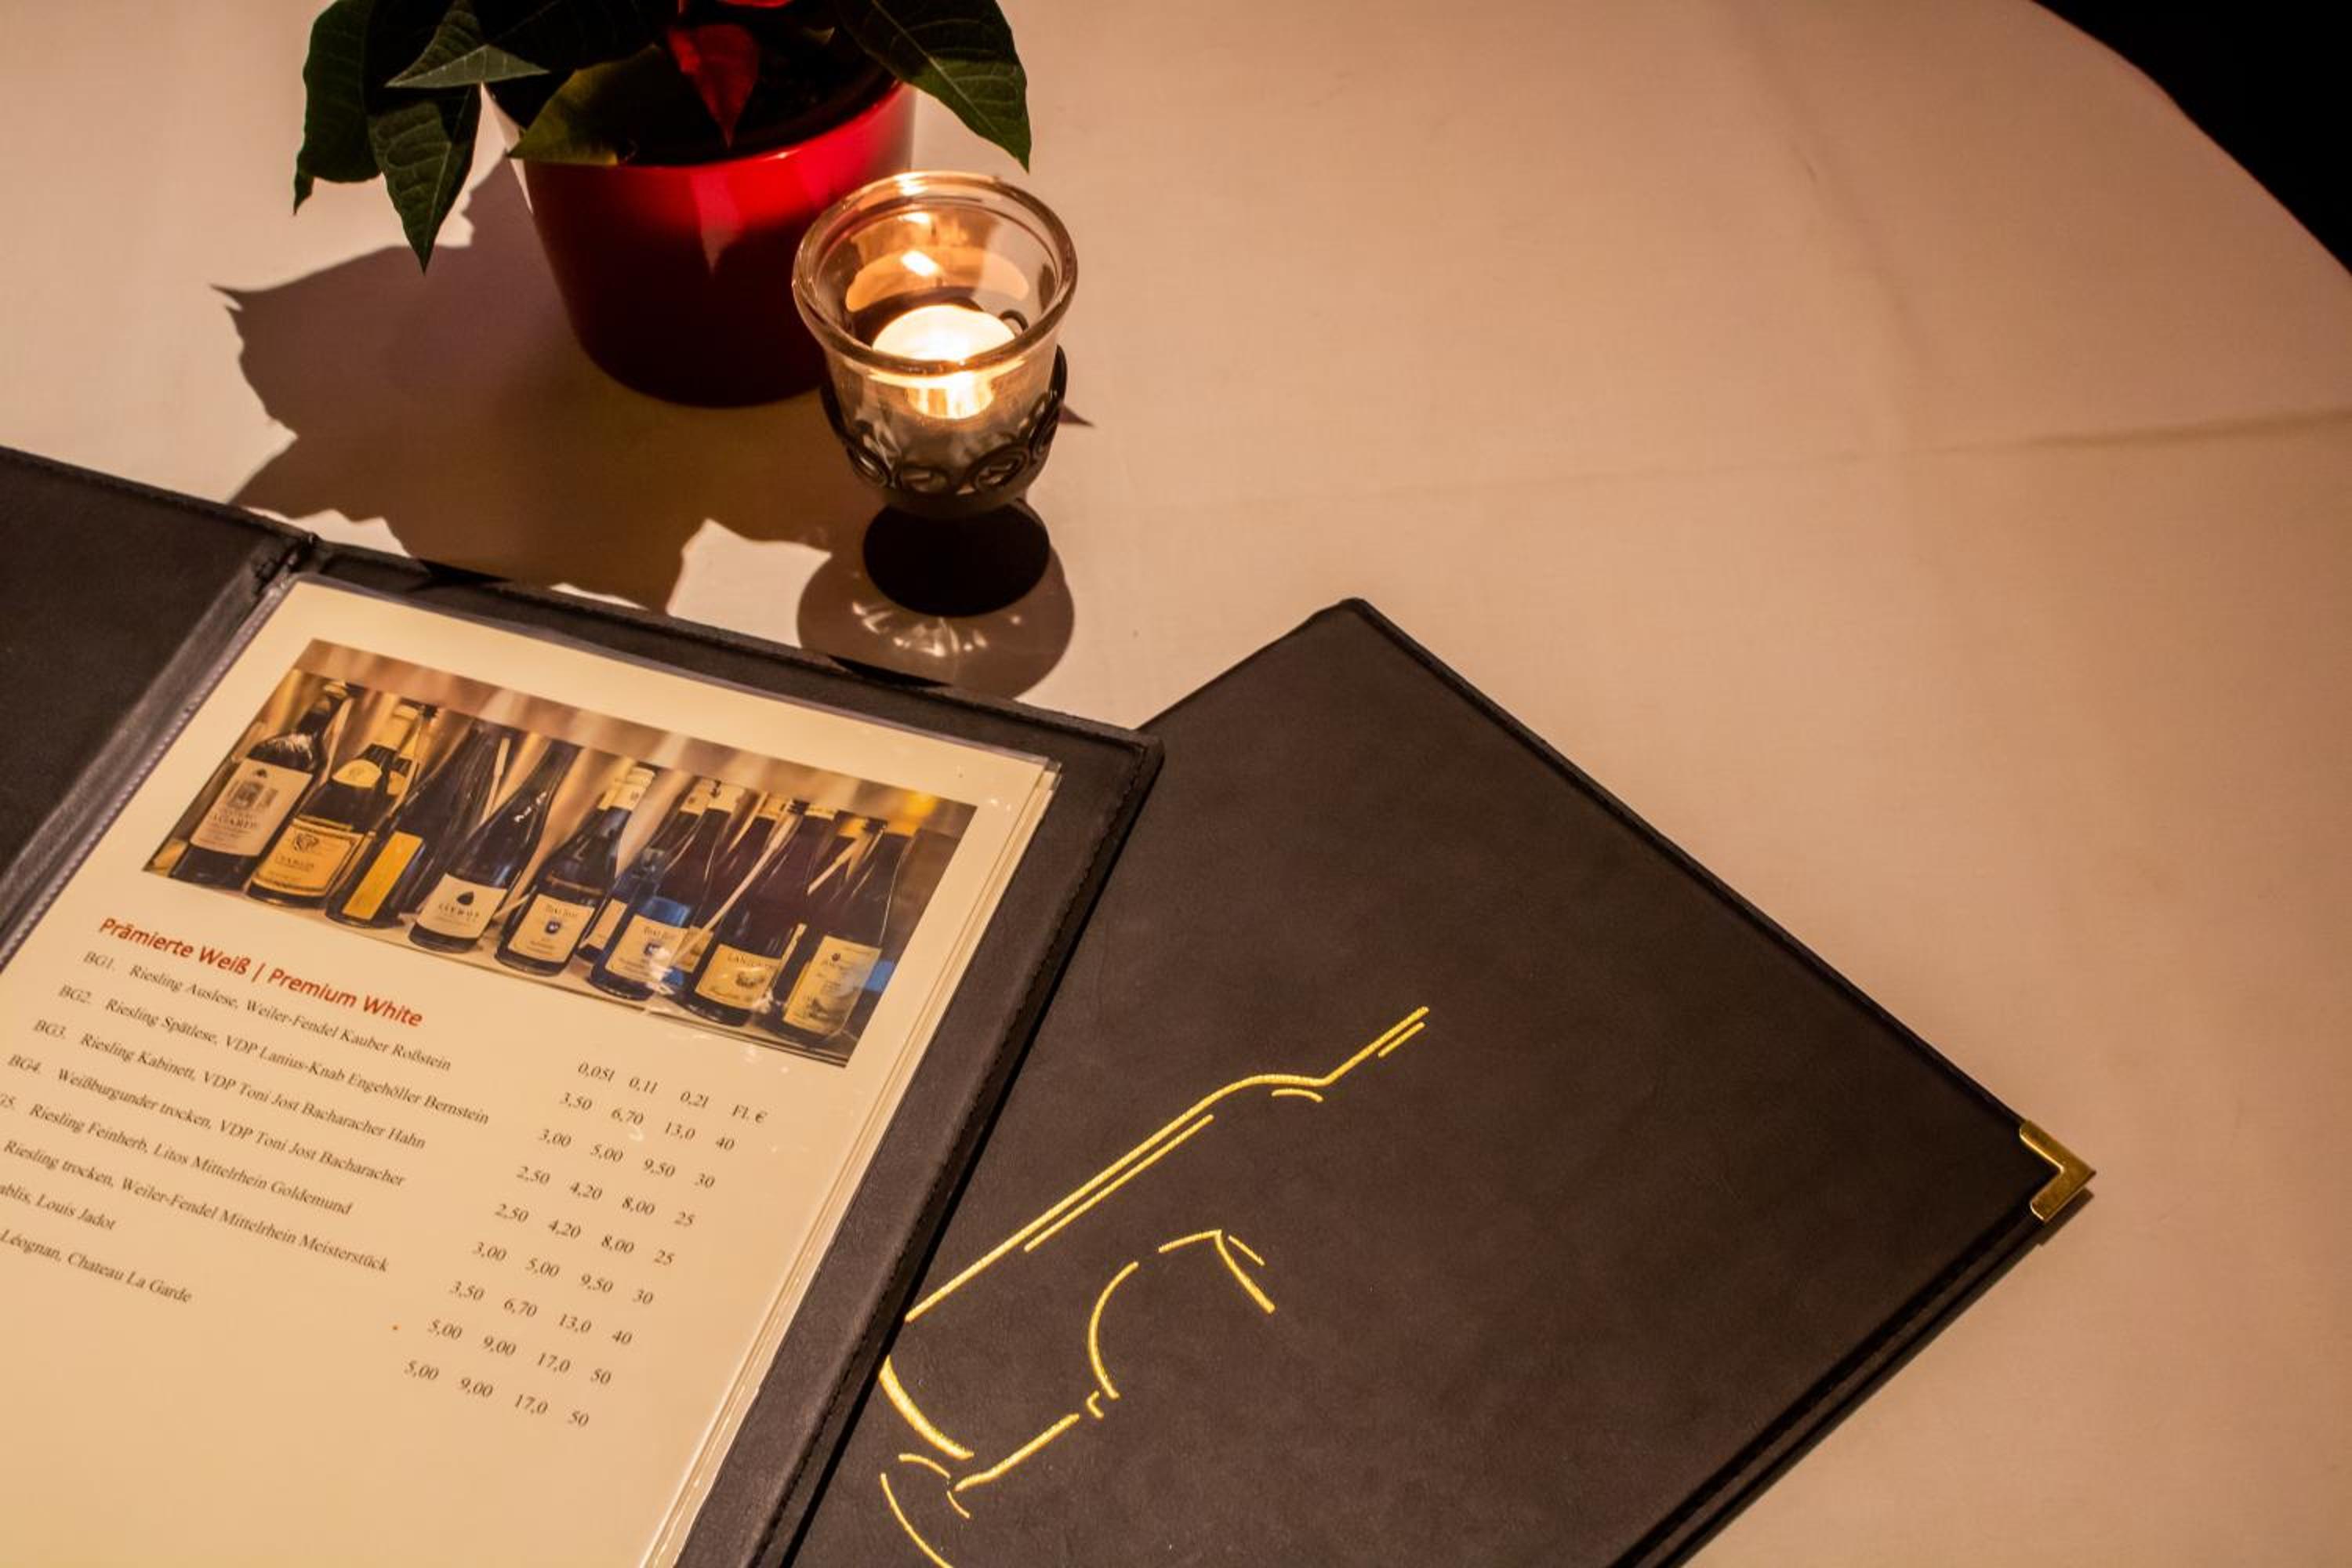 Prämierte Weiß | Premium White
0,05l 0,1l 0,2l Fl. €
BG1. Riesling Auslese, Weiler-Fendel Kauber Roßstein 3,50 6,70 13,0 40
BG2. Riesling Spätlese, VDP Lanius-Knab Engehöller Bernstein 3,00 5,00 9,50 30
BG3. Riesling Kabinett, VDP Toni Jost Bacharacher Hahn 2,50 4,20 8,00 25
BG4. Weißburgunder trocken, VDP Toni Jost Bacharacher 2,50 4,20 8,00 25
G5. Riesling Feinherb, Litos Mittelrhein Goldemund 3,00 5,00 9,50 30
Riesling trocken, Weiler-Fendel Mittelrhein Meisterstück 3,50 6,70 13,0 40
ablis, Louis Jadot 5,00 9,00 17,0 50
Léognan, Chateau La Garde 5,00 9,00 17,0 50